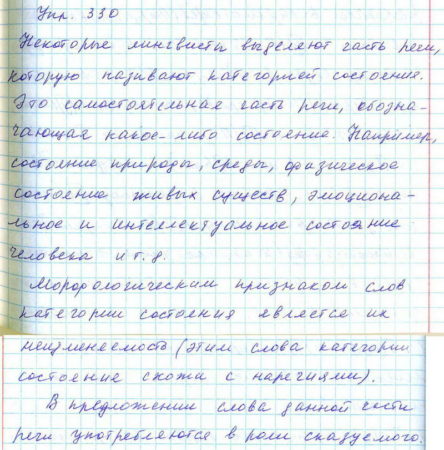 Упр. 330
Некоторые лингвисты выделяют часть речи,
которую называют категорией состояния.
Это самостоятельная часть речи, обозна-
чающая какое-либо состояние. Например,
состояние природы, среды, физическое
состояние живых существ, эмоциона-
льное и интеллектуальное состояние
человека и т.д.
Морфологическим признаком слов
категории состояния является их
неизменяемость (этим слова категории
состояние схожи с наречиями).
В предложении слова данной части
речи употребляются в роли сказуемого.